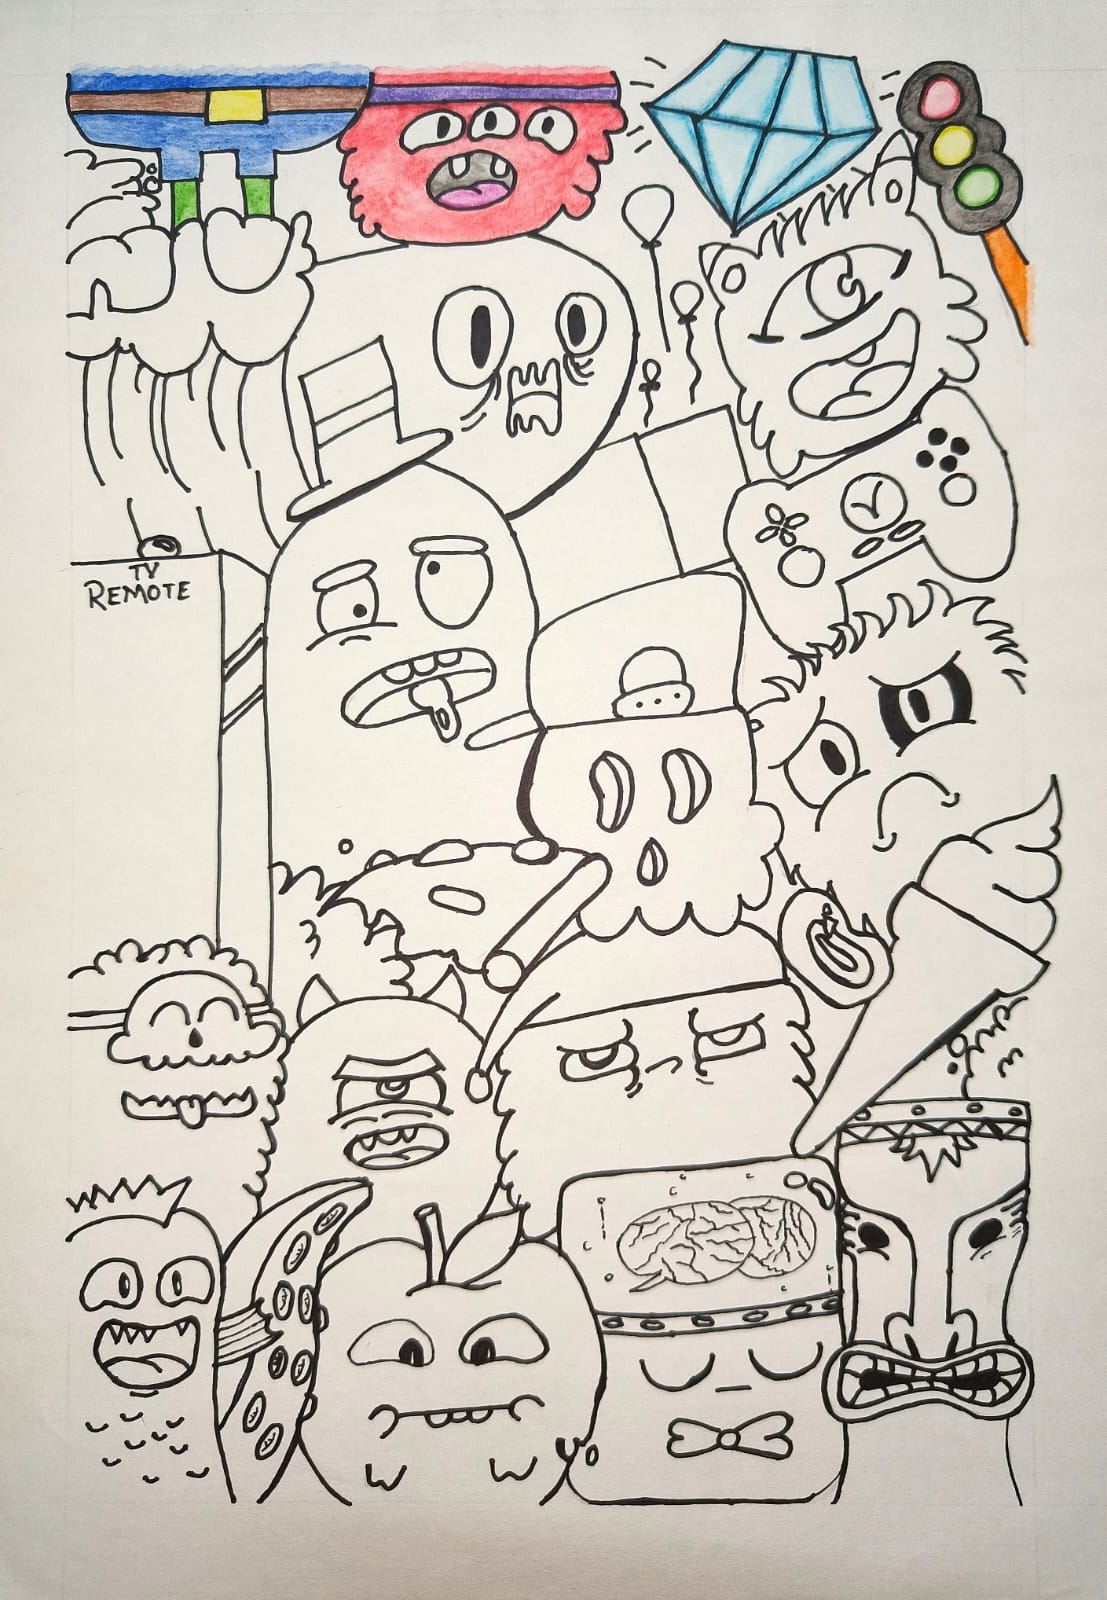 TV
REMOTE